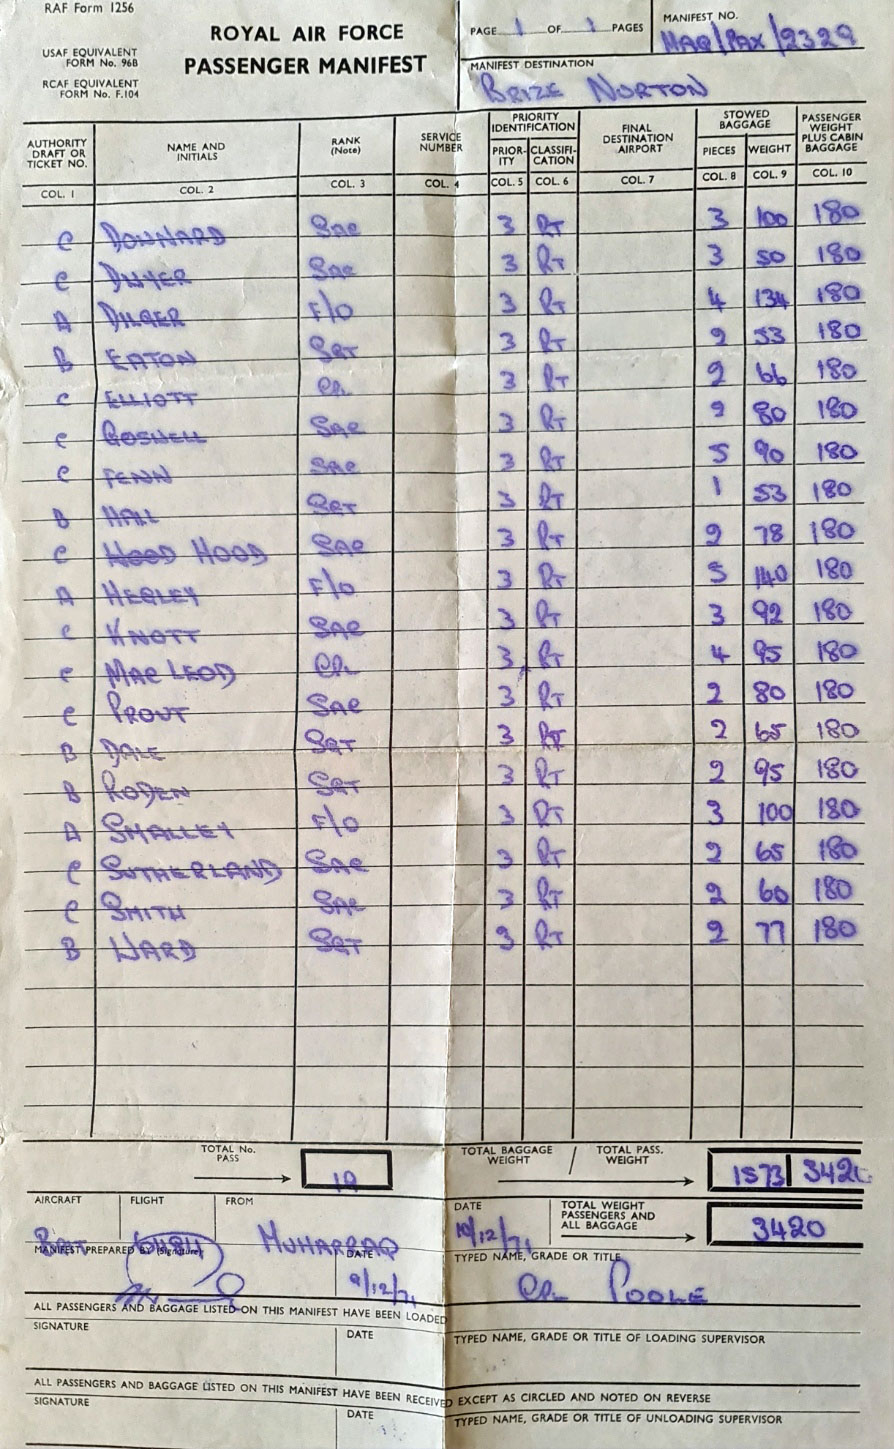 RAF Form 1256
USAF EQUIVALENT
FORM No. 96B
RCAF EQUIVALENT
FORM No. F.104
ROYAL AIR FORCE
PASSENGER MANIFEST
PAGE 1 OF 1 PAGES
MANIFEST NO.
MAQ/PAX/2329
MANIFEST DESTINATION
BRIZE NORTON
AUTHORITY DRAFT OR TICKET NO. NAME AND INITIALS RANK (Note) SERVICE NUMBER PRIORITY IDENTIFICATION PRIOR-ITY CLASSIFI-CATION FINAL DESTINATION AIRPORT STOWED BAGGAGE PIECES WEIGHT PASSENGER WEIGHT PLUS CABIN BAGGAGE
COL. 1 COL. 2 COL. 3 COL. 4 COL. 5 COL. 6 COL. 7 COL. 8 COL. 9 COL. 10
C DOWNARD SAC 3 RT 3 100 180
C DWYER SAC 3 RT 3 50 180
A DILGER F/O 3 RT 4 134 180
B EATON SGT 3 RT 2 53 180
C ELLIOTT CPL 3 RT 2 66 180
C GOSWELL SAC 3 RT 2 80 180
C FENN SAC 3 RT 5 90 180
B HALL SGT 3 RT 1 53 180
C HOOD HOOD SAC 3 RT 2 78 180
A HEGLEY F/O 3 RT 5 140 180
C KNOTT SAC 3 RT 3 92 180
C MACLEOD CPL 3 RT 4 95 180
C PROUT SAC 3 RT 2 80 180
B DALE SGT 3 RT 2 65 180
B RODEN SGT 3 RT 2 95 180
A SMALLEY F/O 3 RT 3 100 180
C SUTHERLAND SAC 3 RT 2 65 180
C SMITH SAC 3 RT 2 60 180
B WARD SGT 3 RT 2 77 180
TOTAL No. PASS 19
TOTAL BAGGAGE WEIGHT / TOTAL PASS. WEIGHT 1573 3420
AIRCRAFT FLIGHT FROM MUHARRAQ
DATE 10/12/71
TOTAL WEIGHT PASSENGERS AND ALL BAGGAGE 3420
MANIFEST PREPARED BY (Signature) DATE 9/12/71
TYPED NAME, GRADE OR TITLE
CPL POOLE
ALL PASSENGERS AND BAGGAGE LISTED ON THIS MANIFEST HAVE BEEN LOADED
SIGNATURE DATE TYPED NAME, GRADE OR TITLE OF LOADING SUPERVISOR
ALL PASSENGERS AND BAGGAGE LISTED ON THIS MANIFEST HAVE BEEN RECEIVED EXCEPT AS CIRCLED AND NOTED ON REVERSE
SIGNATURE DATE TYPED NAME, GRADE OR TITLE OF UNLOADING SUPERVISOR